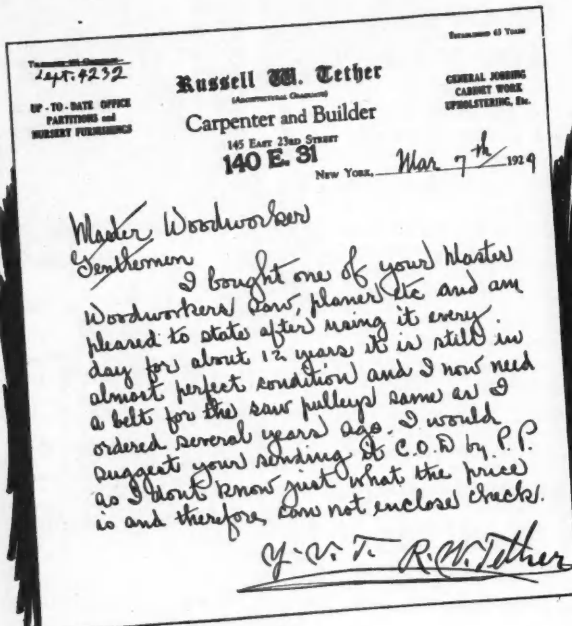 ESTABLISHED 45 YEARS
Lext. 4232
Russell W. Tether
(ARCHITECTURAL GRADUATE)
Carpenter and Builder
145 EAST 23RD STREET
140 E. 31
UP-TO-DATE OFFICE
PARTITIONS and
NURSERY FURNISHINGS
GENERAL JOBBING
CABINET WORK
UPHOLSTERING, Etc.
NEW YORK, Mar 7th 1929
Master Woodworker
Gentlemen
I bought one of your Master
Woodworkers saw, planer etc and am
pleased to state after using it every
day for about 12 years it is still in
almost perfect condition and I now need
a belt for the saw pulleys same as I
ordered several years ago. I would
suggest your sending it C.O.D by P.P.
as I dont know just what the price
is and therefore can not enclose check.
Y.V.T. R.W. Tether